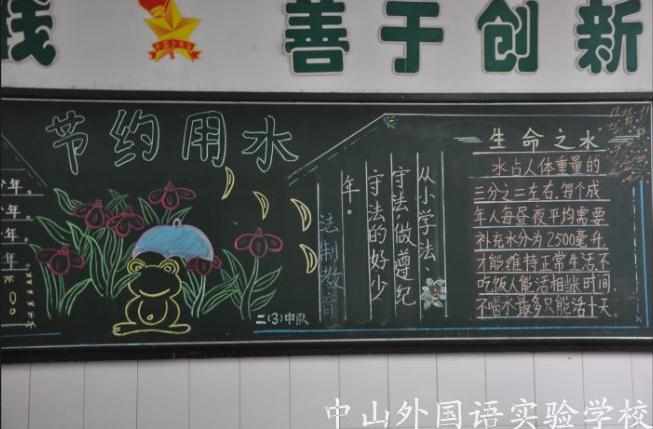 善于创新
节约用水
年。
年。
年。
年
从小学法、
守法,做遵纪
守法的好少
年。
法制教育
二(3)中队
生命之水
水占人体重量的
三分之二左右,每个成
年人每昼夜平均需要
补充水分为2500毫升,
才能维持正常生活,不
吃饭人能活相时间,
不喝水最多只能活十天.
中山外国语实验学校